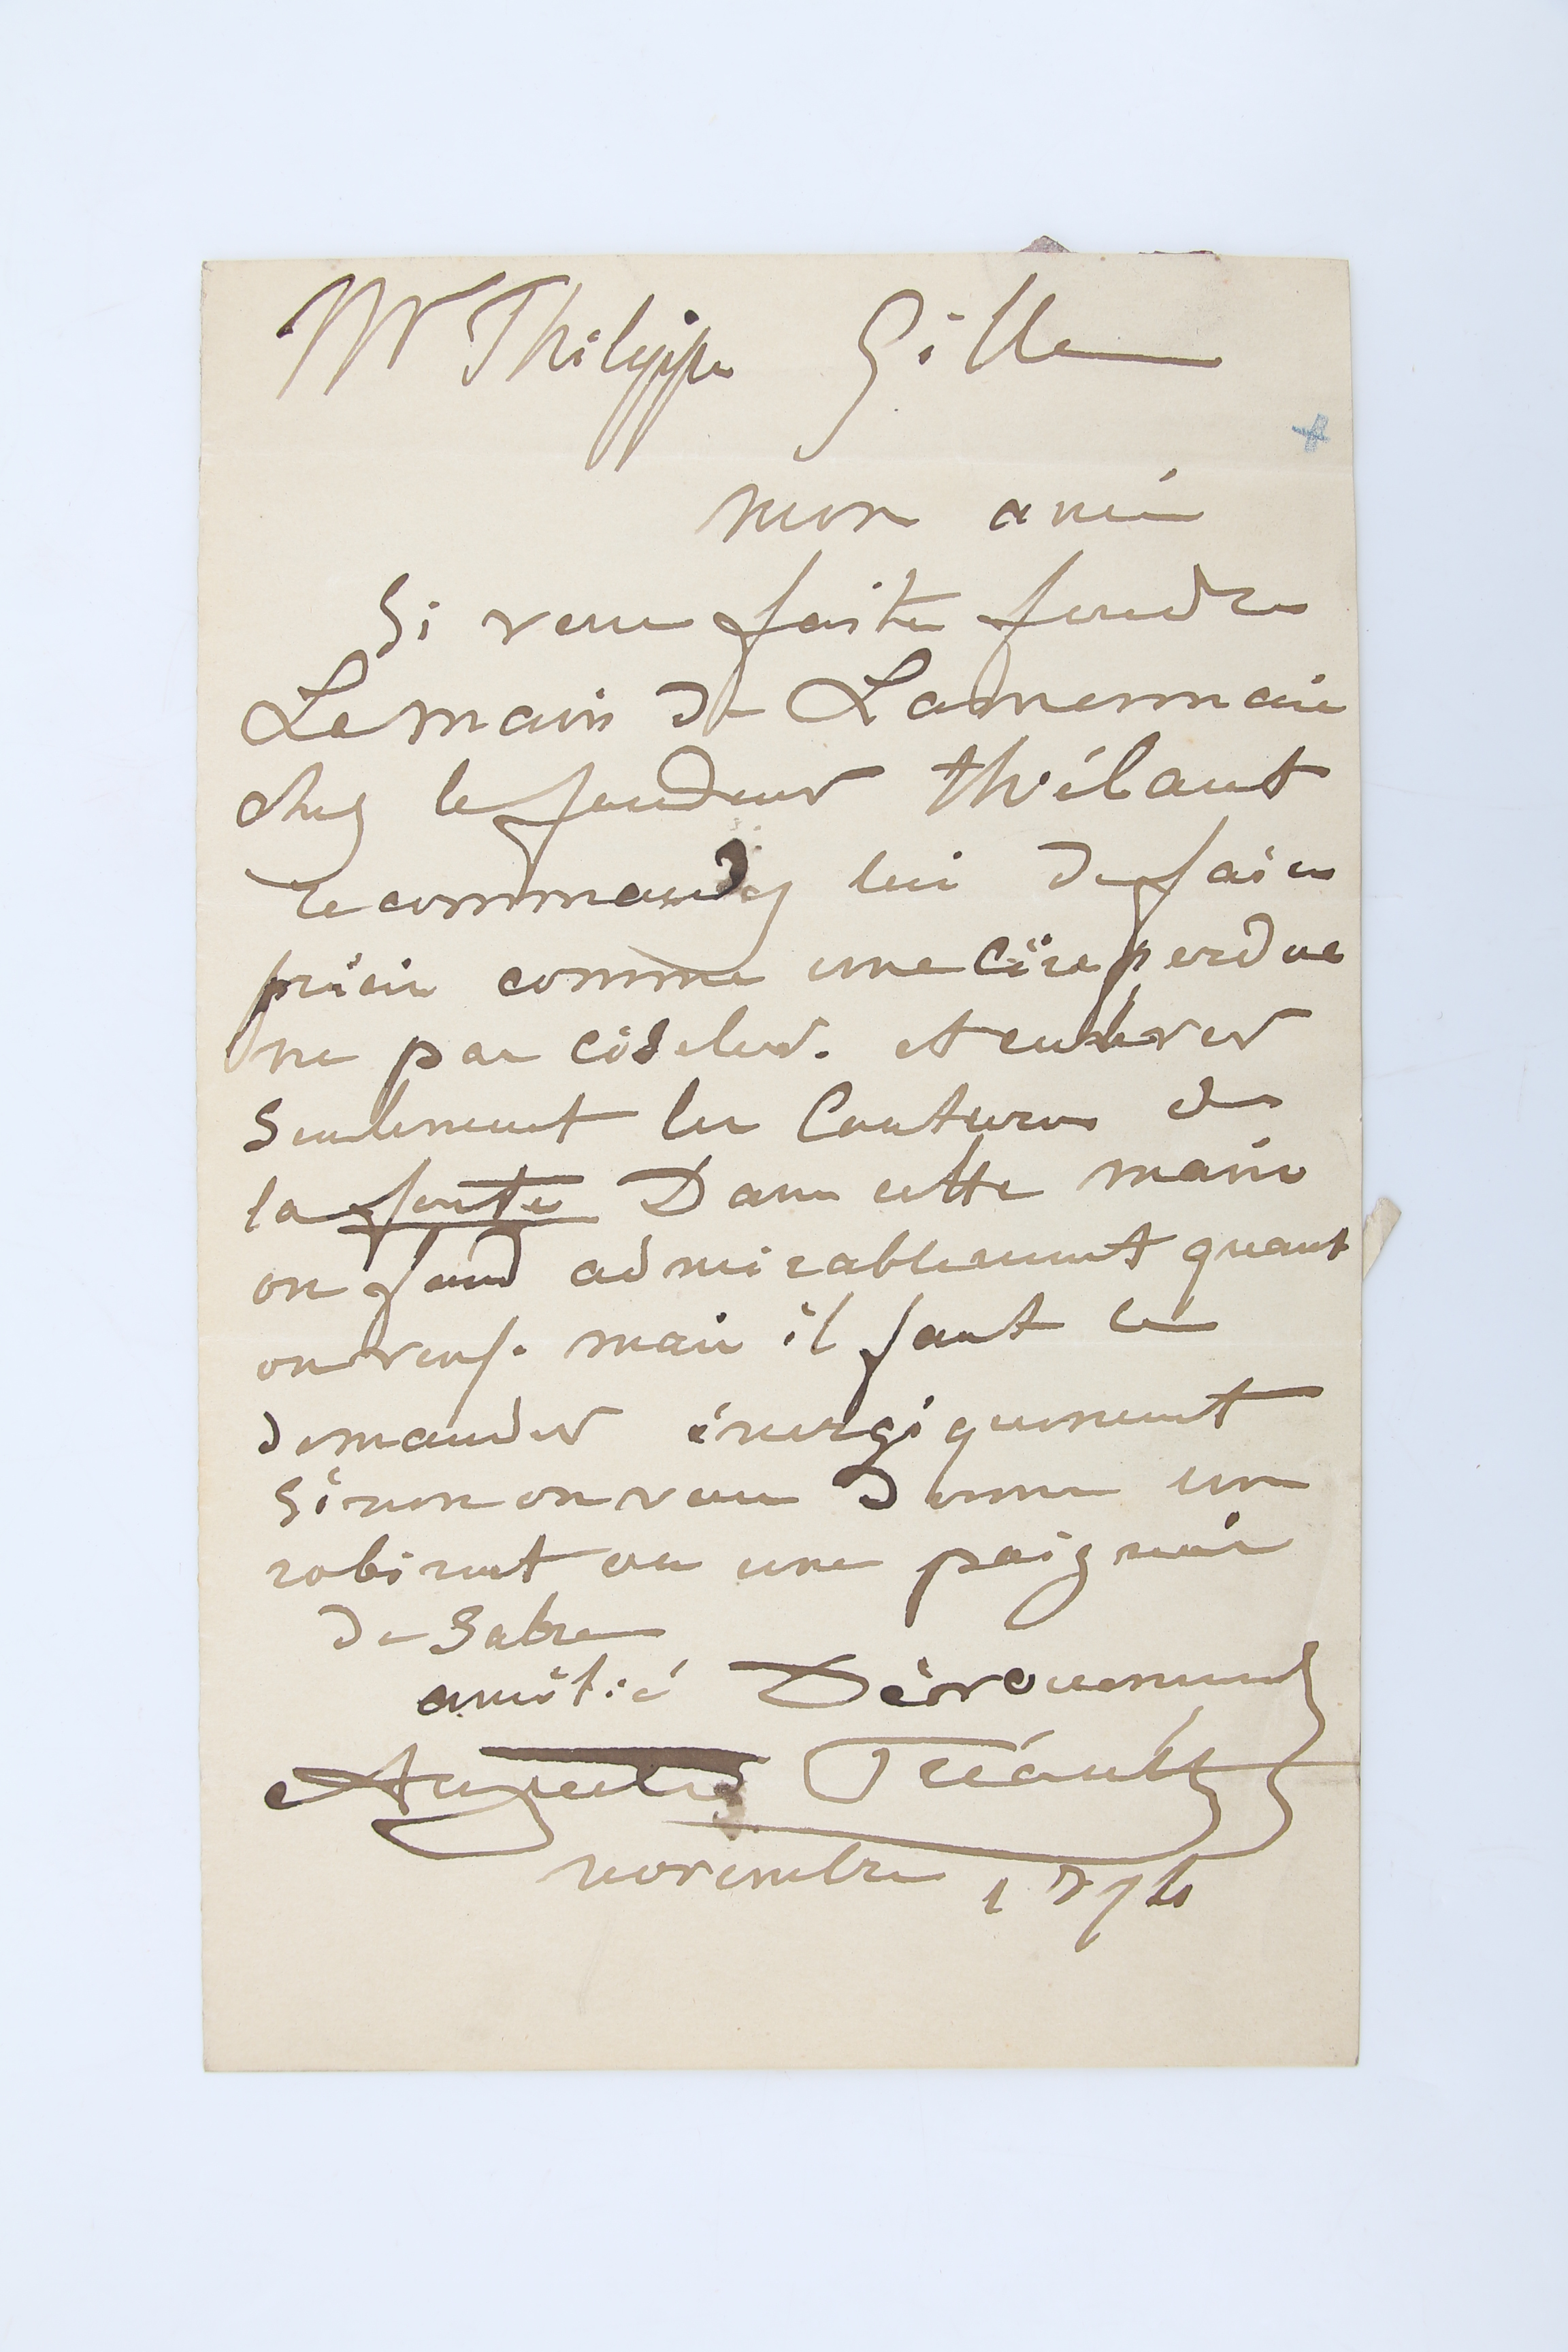 Mr Philippe Gille
mon ami
Si vous faite fondre
La main de Lamennais
chez le fondeur thiébaut
recommandez lui de faire
précis comme une cire perdue
ne pas ciseler. et enlever
seulement les Coutures de
la fonte Dans cette main
on fond admirablement quant
on veuf. mais il faut le
demander énergiquement
Sinon on vous donne un
robinet ou une poignée
de Sabre
amitié Dévouement
Auguste Préault
novembre 1874